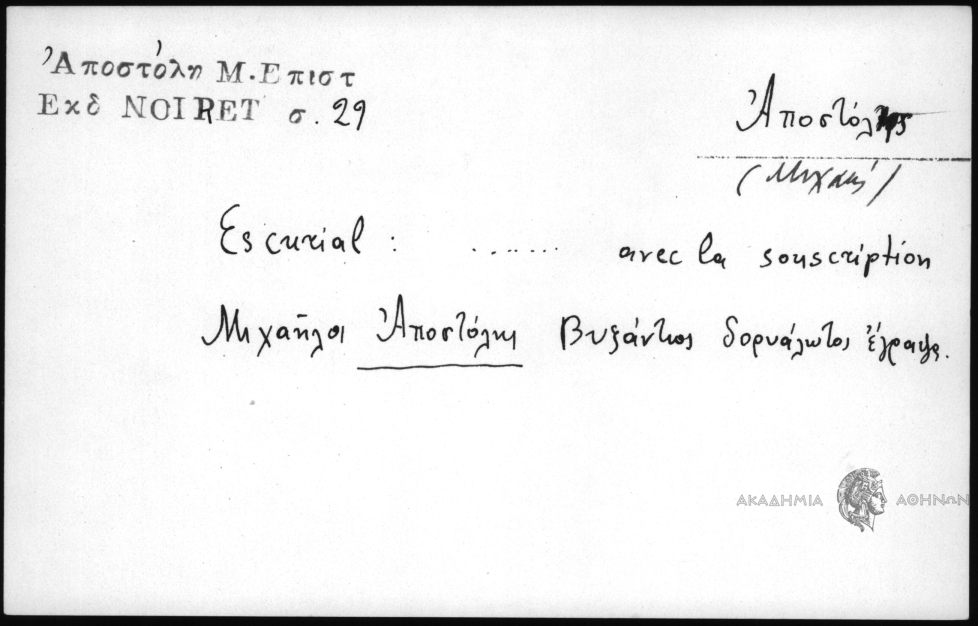 Ἀποστόλη Μ. Επιστ
Εκδ NOIRET σ. 29
Ἀποστόλης
(Μιχαήλ)
Escurial : ....... avec la souscription
Μιχαῆλος Ἀποστόλης Βυζάντιος δορυάλωτος ἔγραψε.
ΑΚΑΔΗΜΙΑ ΑΘΗΝΩΝ